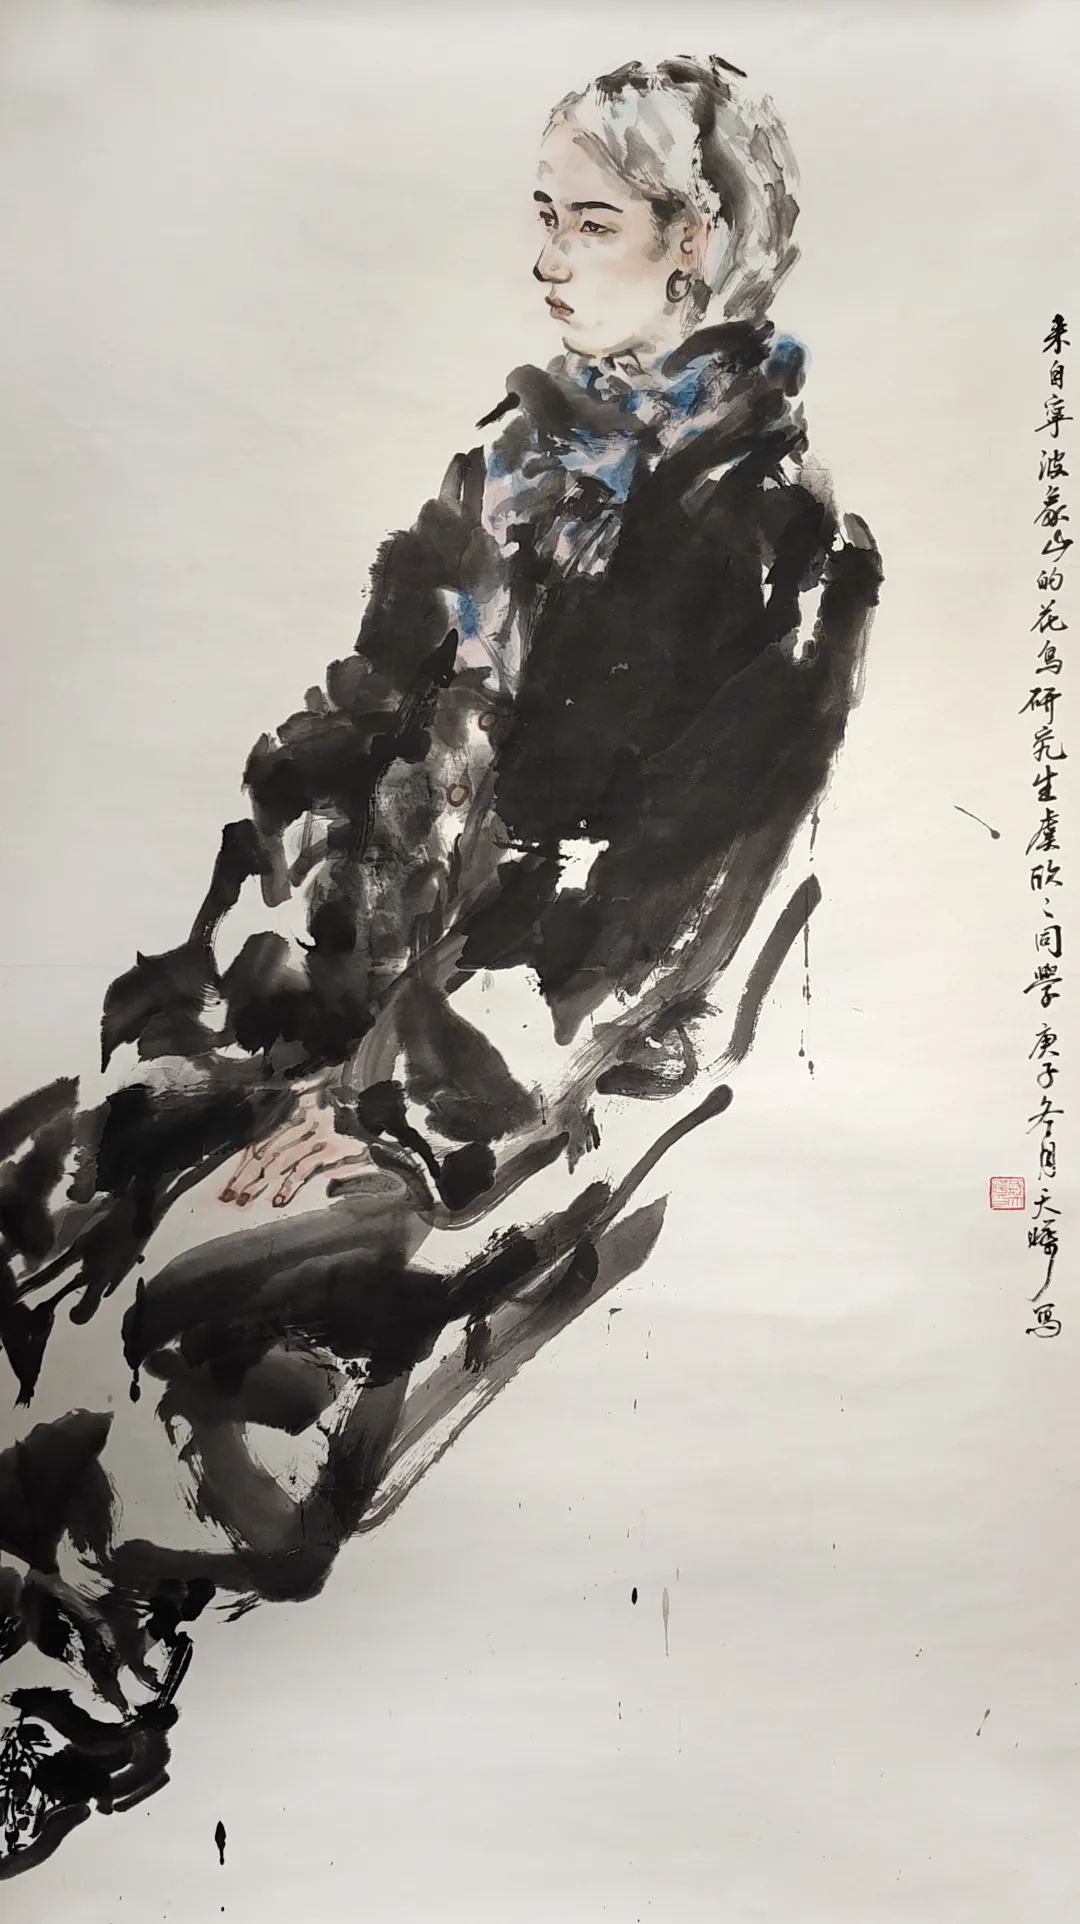 来自寧波象山的花鸟研究生虞欣々同學庚子冬月天曄写